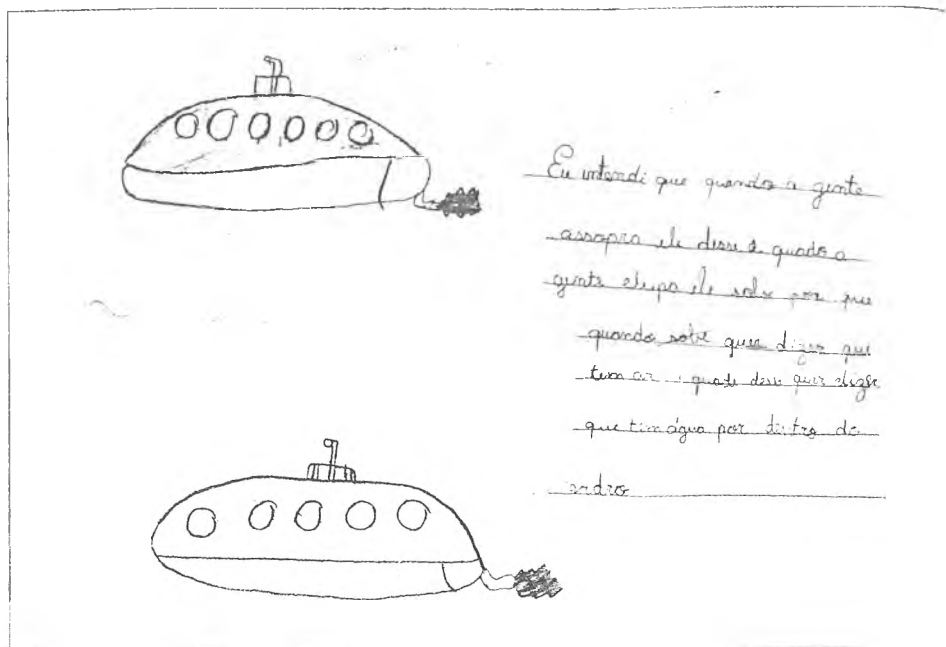 Eu intendi que quando a gente
assopra ele desse e quado a
gente chupa ele sobe por que
quando sobe quer dizer que
tem ar e quado dese quer dizer
que tem água por dentro do
vidro